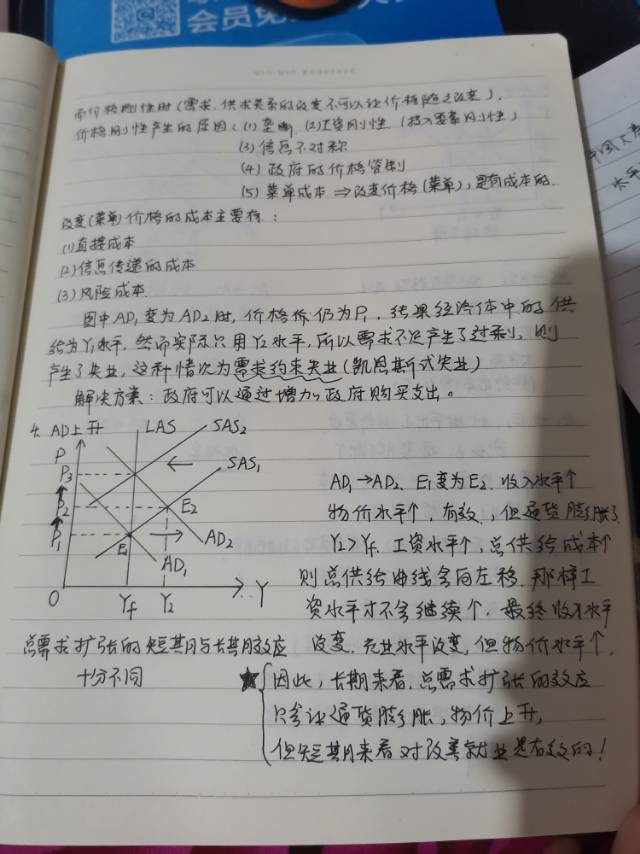 会员免
市价格刚性时(需求、供求关系的改变不可以让价格随之改变).
价格刚性产生的原因:(1)垄断 (2)工资刚性 (投入要素刚性)
(3)信息不对称
(4)政府的价格管制
(5)菜单成本 ⇒改变价格(菜单),是有成本的.
改变(菜单)价格的成本主要有:
(1)直接成本
(2)信息传递的成本
(3)风险成本
图中AD₁变为AD₂时,价格仍为P₁,结果经济体中的供
给为Y₁水平,然而实际只用Y₂水平,所以需求不足产生了过剩,则
产生了失业,这种情况为需求约束失业(凯恩斯式失业)
解决方案:政府可以通过增加政府购买支出。
4. AD上升
LAS
SAS₂
P
P₃
SAS₁
P₂
E₂
P₁
E₁
AD₂
AD₁
O
Yf
Y₂
Y
AD₁→AD₂、E₁变为E₂、收入水平↑
物价水平↑,有效,但通货膨胀了
Y₂>Yf 工资水平↑,总供给成本↑
则总供给曲线会向左移.那样工
资水平才不会继续↑,最终收入水平
没变,充业水平没变,但物价水平↑.
总需求扩张的短期与长期效应
十分不同
★因此,长期来看,总需求扩张的效应
只会让通货膨胀,物价上升,
但短期来看对改善就业是有效的!